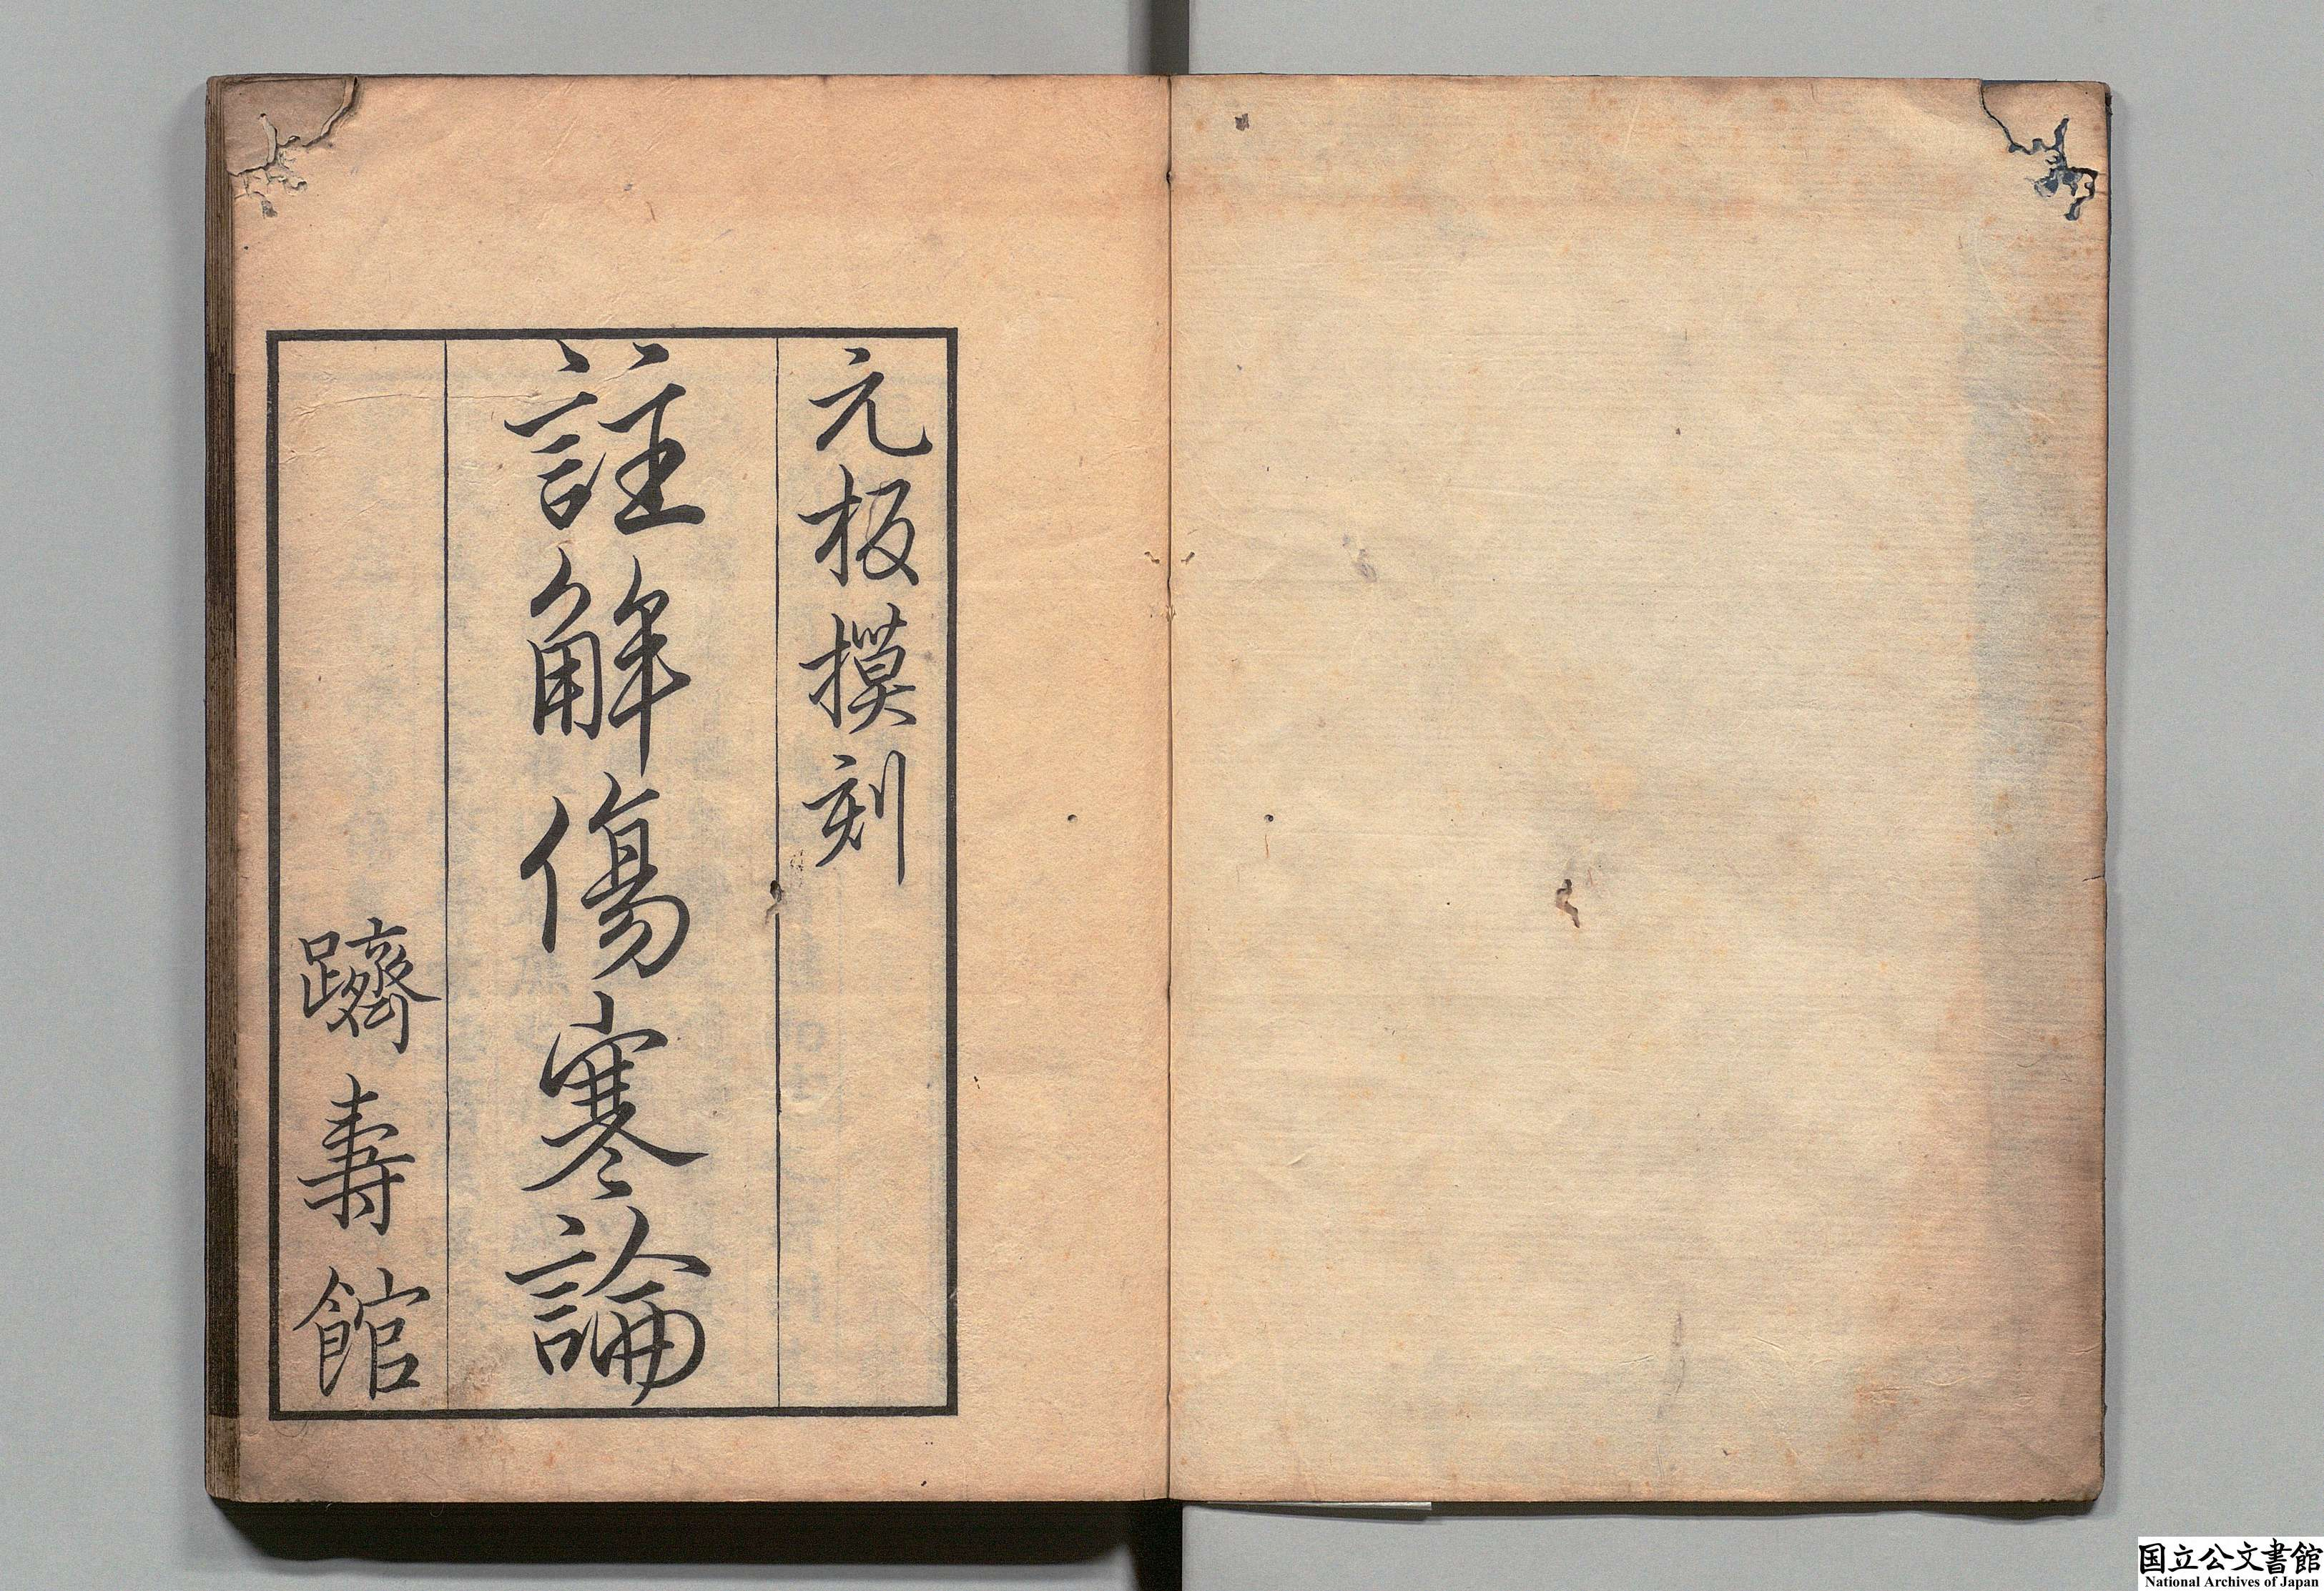 元板摸刻
註解傷寒論
躋壽館
国立公文書館
National Archives of Japan